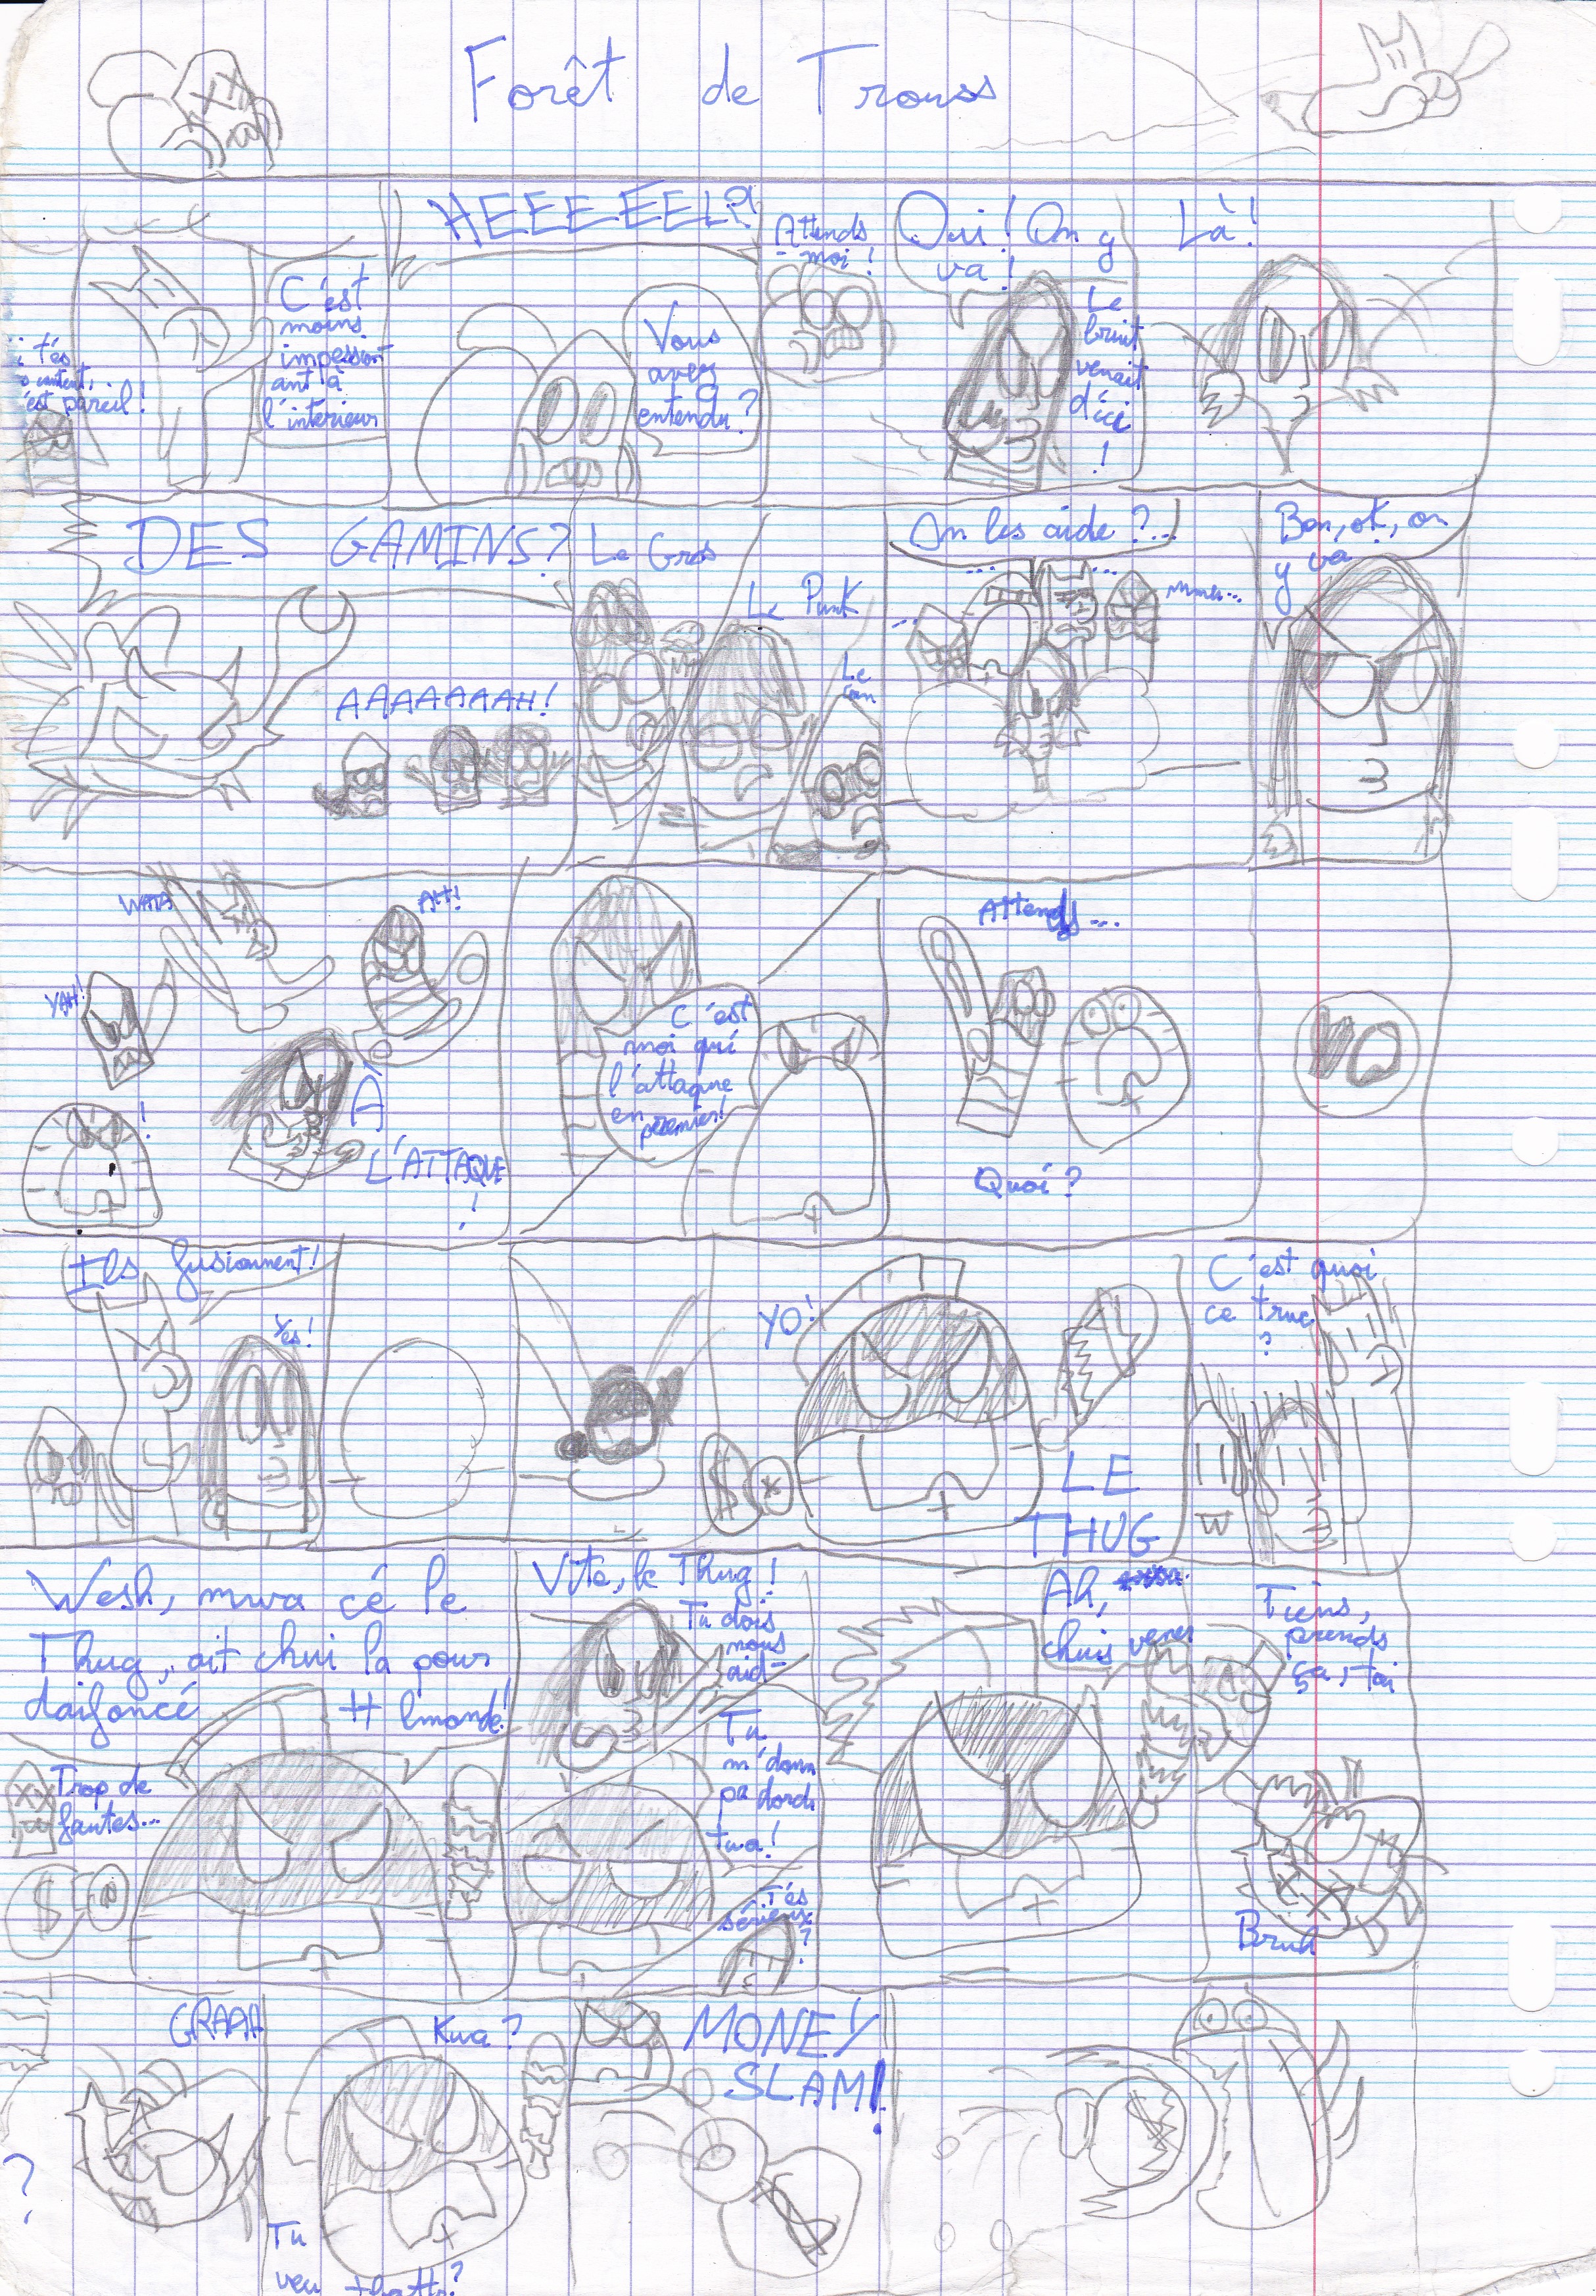 Forêt de Trouss
t'es
c'est pareil!
C'est
moins
impession
ant à
l'intérieur
HEEEEEELP
Vous
avez
entendu?
Attends
-moi!
Oui! On y
va!
Le
bruit
venait
d'ici
!
Là!
DES GAMINS?
AAAAAAAH!
Le Gros
Le Punk
Le
On les aide?...
...
...
...
mmm...
Bon, ok, on
y va
WAAA
AH!
YAH!
!
À
L'ATTAQUE
!
C'est
moi qui
l'attaque
en
premier!
Attends...
Quoi?
Ils fusionnent!
Yes!
YO!
$
LE
THUG
C'est quoi
ce truc
?
Wesh, mwa cé le
Thug, ait chui la pour
daifoncé tt lmonde!
Trop de
fautes...
$
Vite, le Thug!
Tu dois
nous
aid-
Tu
m'donn
pa dordr
twa!
T'es
sérieux
?
Ah,
chuis vener
Tiens,
prends
ça, toi
Bruh
?
GRAAH
Kwa?
Tu
veu tbattr?
MONEY
SLAM!